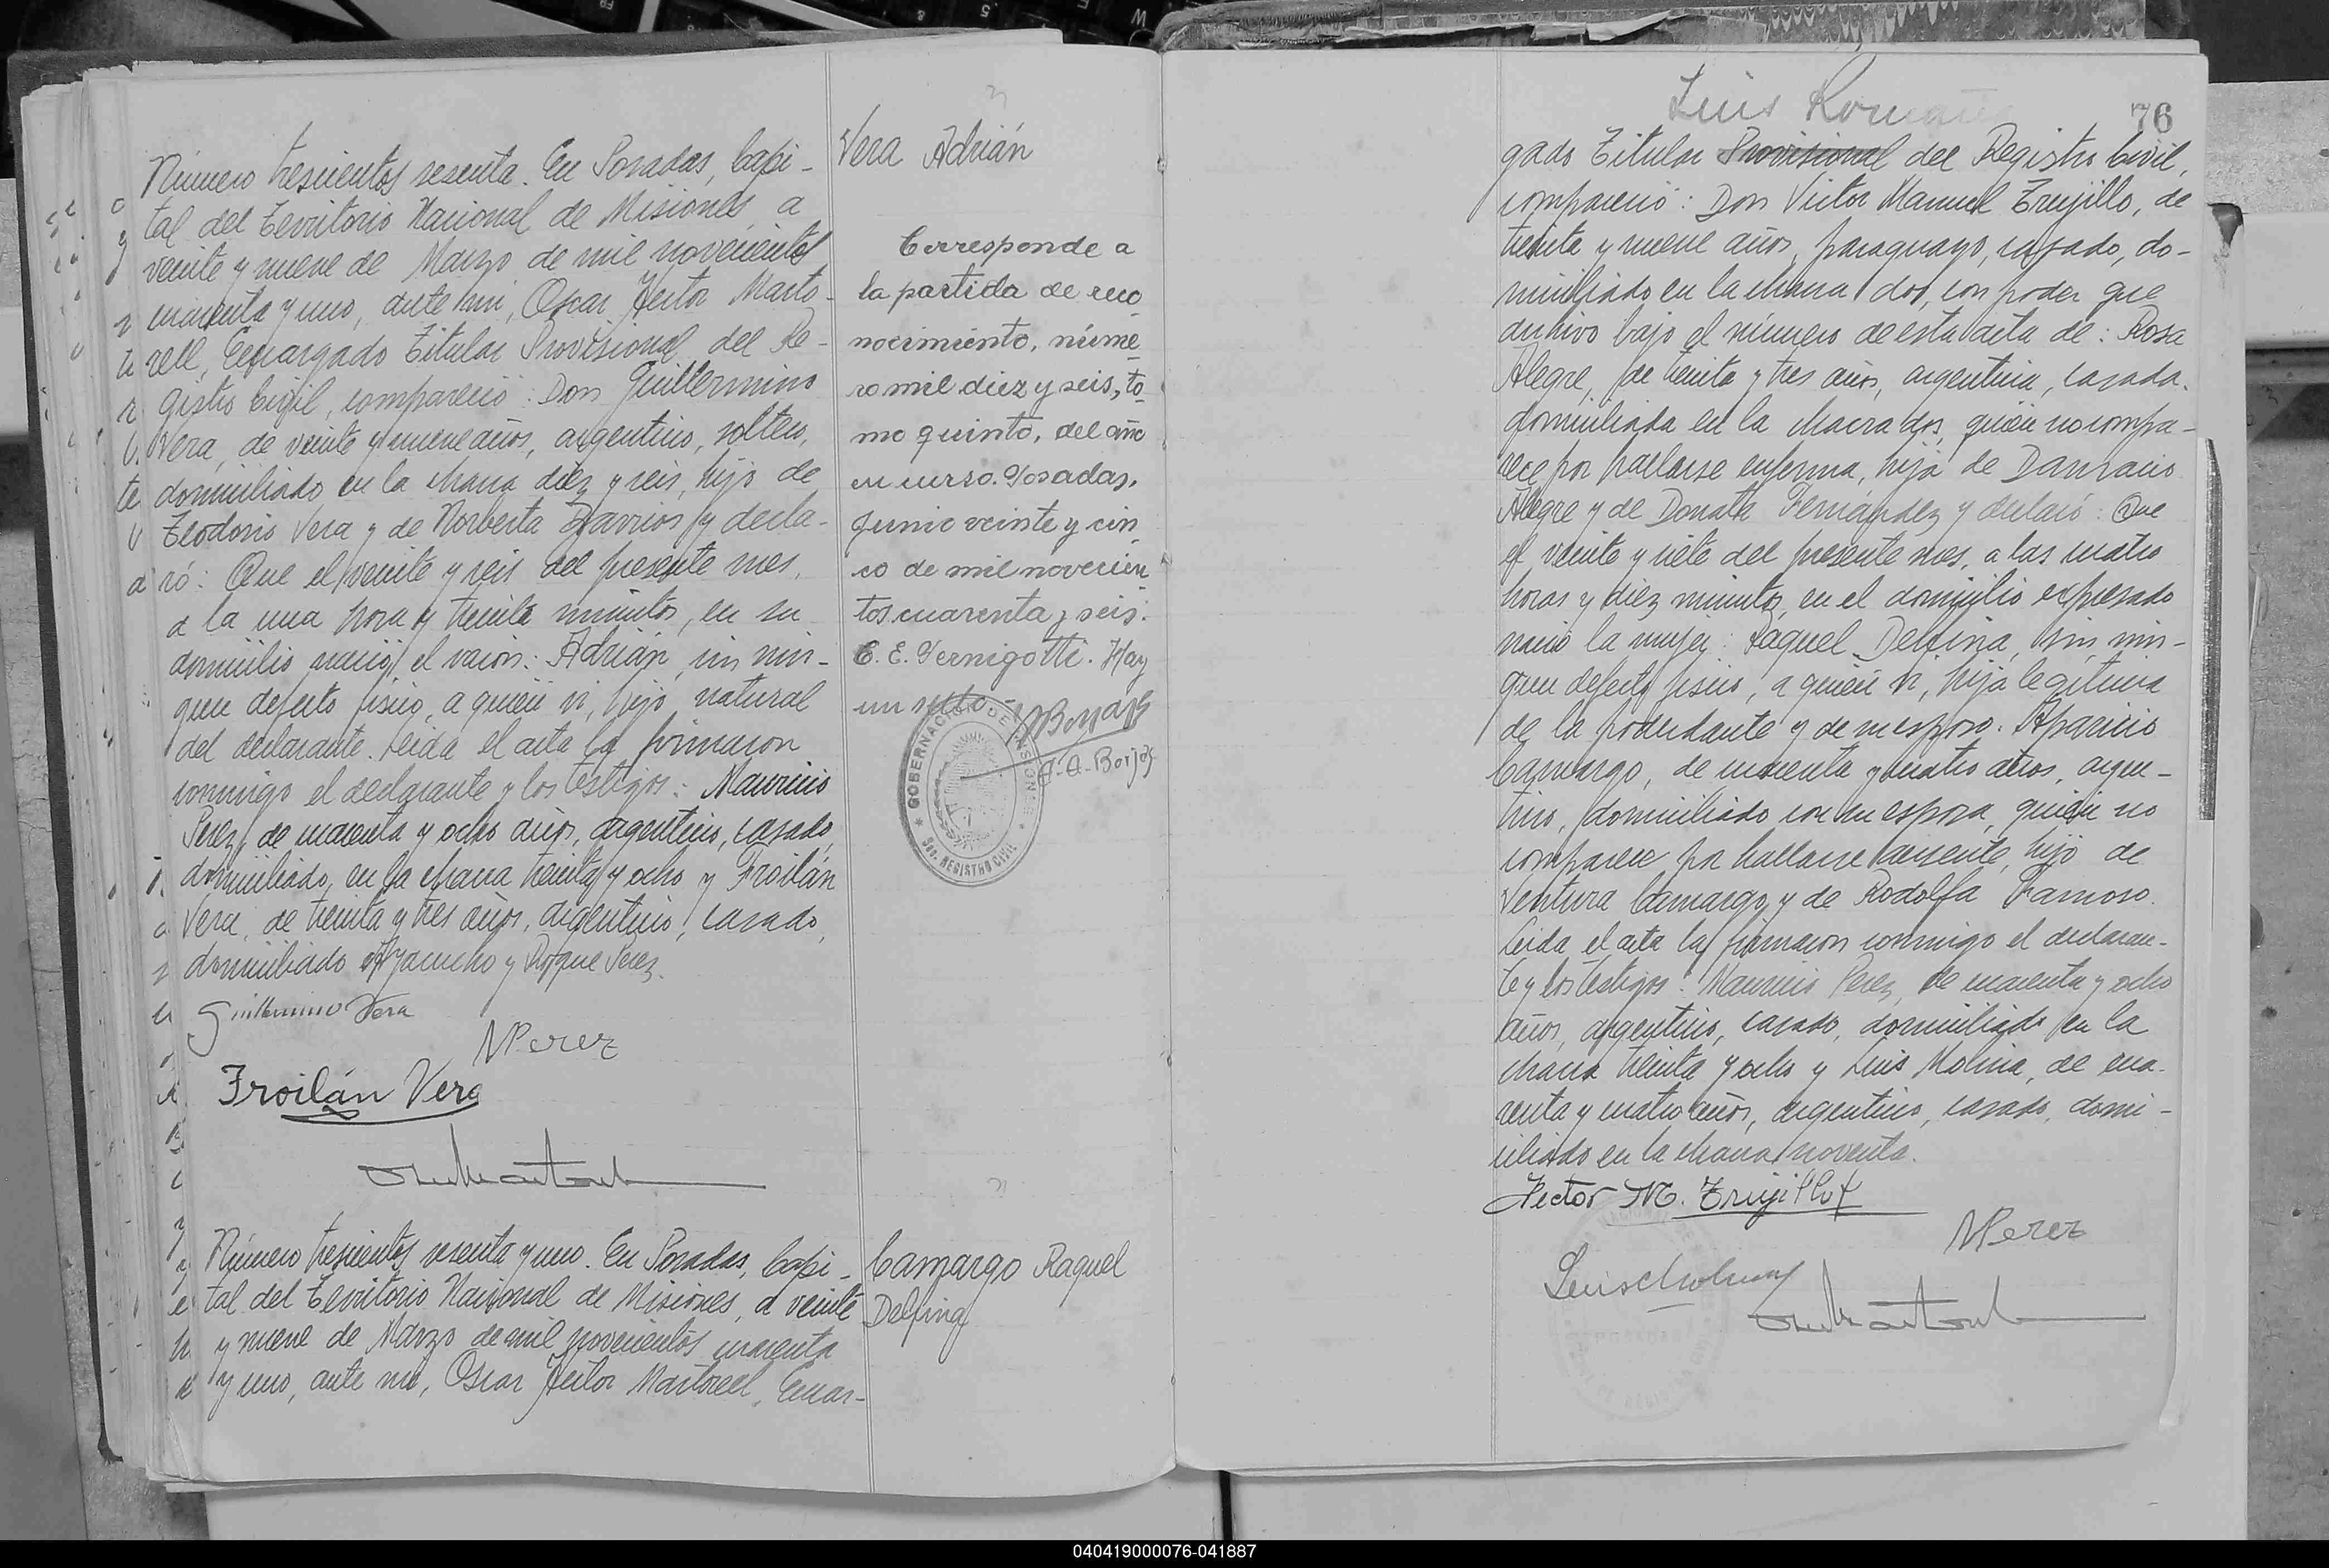 Número trescientos sesenta. En Posadas, Capi-
tal del Territorio Nacional de Misiones, a
veinte y nueve de Marzo de mil novecientos
cuarenta y uno, ante mi, Oscar Hector Marto-
rell, Encargado Titular Provisional del Re-
gistro Civil, compareció: Don Guillermino
Vera, de veinte y nueve años, argentino, soltero,
domiciliado en la chacra diez y seis, hijo de
Teodoro Vera y de Norberta Barrios y decla-
ró: Que el veinte y seis del presente mes,
a la una hora y treinta minutos, en su
domicilio nació el varon: Adrián, sin nin-
gun defecto fisico, a quién vi, hijo natural
del declarante. Leida el acta la firmaron
conmigo el declarante y los testigos: Mauricio
Perez, de cuarenta y ocho años, argentino, casado,
domiciliado en la chacra treinta y ocho y Froilán
Vera, de treinta y tres años, argentino, casado,
domiciliado Ayacucho y Roque Perez.
Guillermino Vera
MPerez
Froilán Vera
Vera Adrián
Corresponde a
la partida de reco
nocimiento, núme
ro mil diez y seis, to
mo quinto, del año
en curso. Posadas,
Junio veinte y cin
co de mil novecien
tos cuarenta y seis.
C. E. Pernigotti. Hay
un sello -
A. A. Borjas
GOBERNACION DE MISIONES
Sec. REGISTRO CIVIL
Número trescientos sesenta y uno. En Posadas, Capi-
tal del Territorio Nacional de Misiones, a veinte
y nueve de Marzo de mil novecientos cuarenta
y uno, ante mi, Oscar Hector Martorell, Encar-
Camargo Raquel
Delfina
Luis Roman
76
gado Titular Provisional del Registro Civil,
compareció: Don Victor Manuel Trujillo, de
treinta y nueve años, paraguayo, casado, do-
miciliado en la chacra dos, con poder que
archivo bajo el número de esta acta de: Rosa
Alegre, de treinta y tres años, argentina, casada,
domiciliada en la chacra dos, quién no compa-
rece por hallarse enferma, hija de Damacio
Alegre y de Donata Fernández y declaró: Que
el veinte y siete del presente mes, a las cuatro
horas y diez minutos, en el domicilio expresado
nació la mujer: Raquel Delfina, sin nin-
gun defecto fisico, a quién vi, hija legitima
de la poderdante y de su esposo. Aparicio
Camargo, de cuarenta y cuatro años, argen-
tino, domiciliado con su esposa, quién no
comparece por hallarse ausente, hijo de
Ventura Camargo y de Rodolfa Famoso.
Leida el acta la firmaron conmigo el declaran-
te y los testigos: Mauricio Perez, de cuarenta y ocho
años, argentino, casado, domiciliado en la
chacra treinta y ocho y Luis Molina, de cua-
renta y cuatro años, argentino, casado, domi-
ciliado en la chacra noventa.
Victor M. Trujillo
MPerez
Luis Molina
040419000076-041887